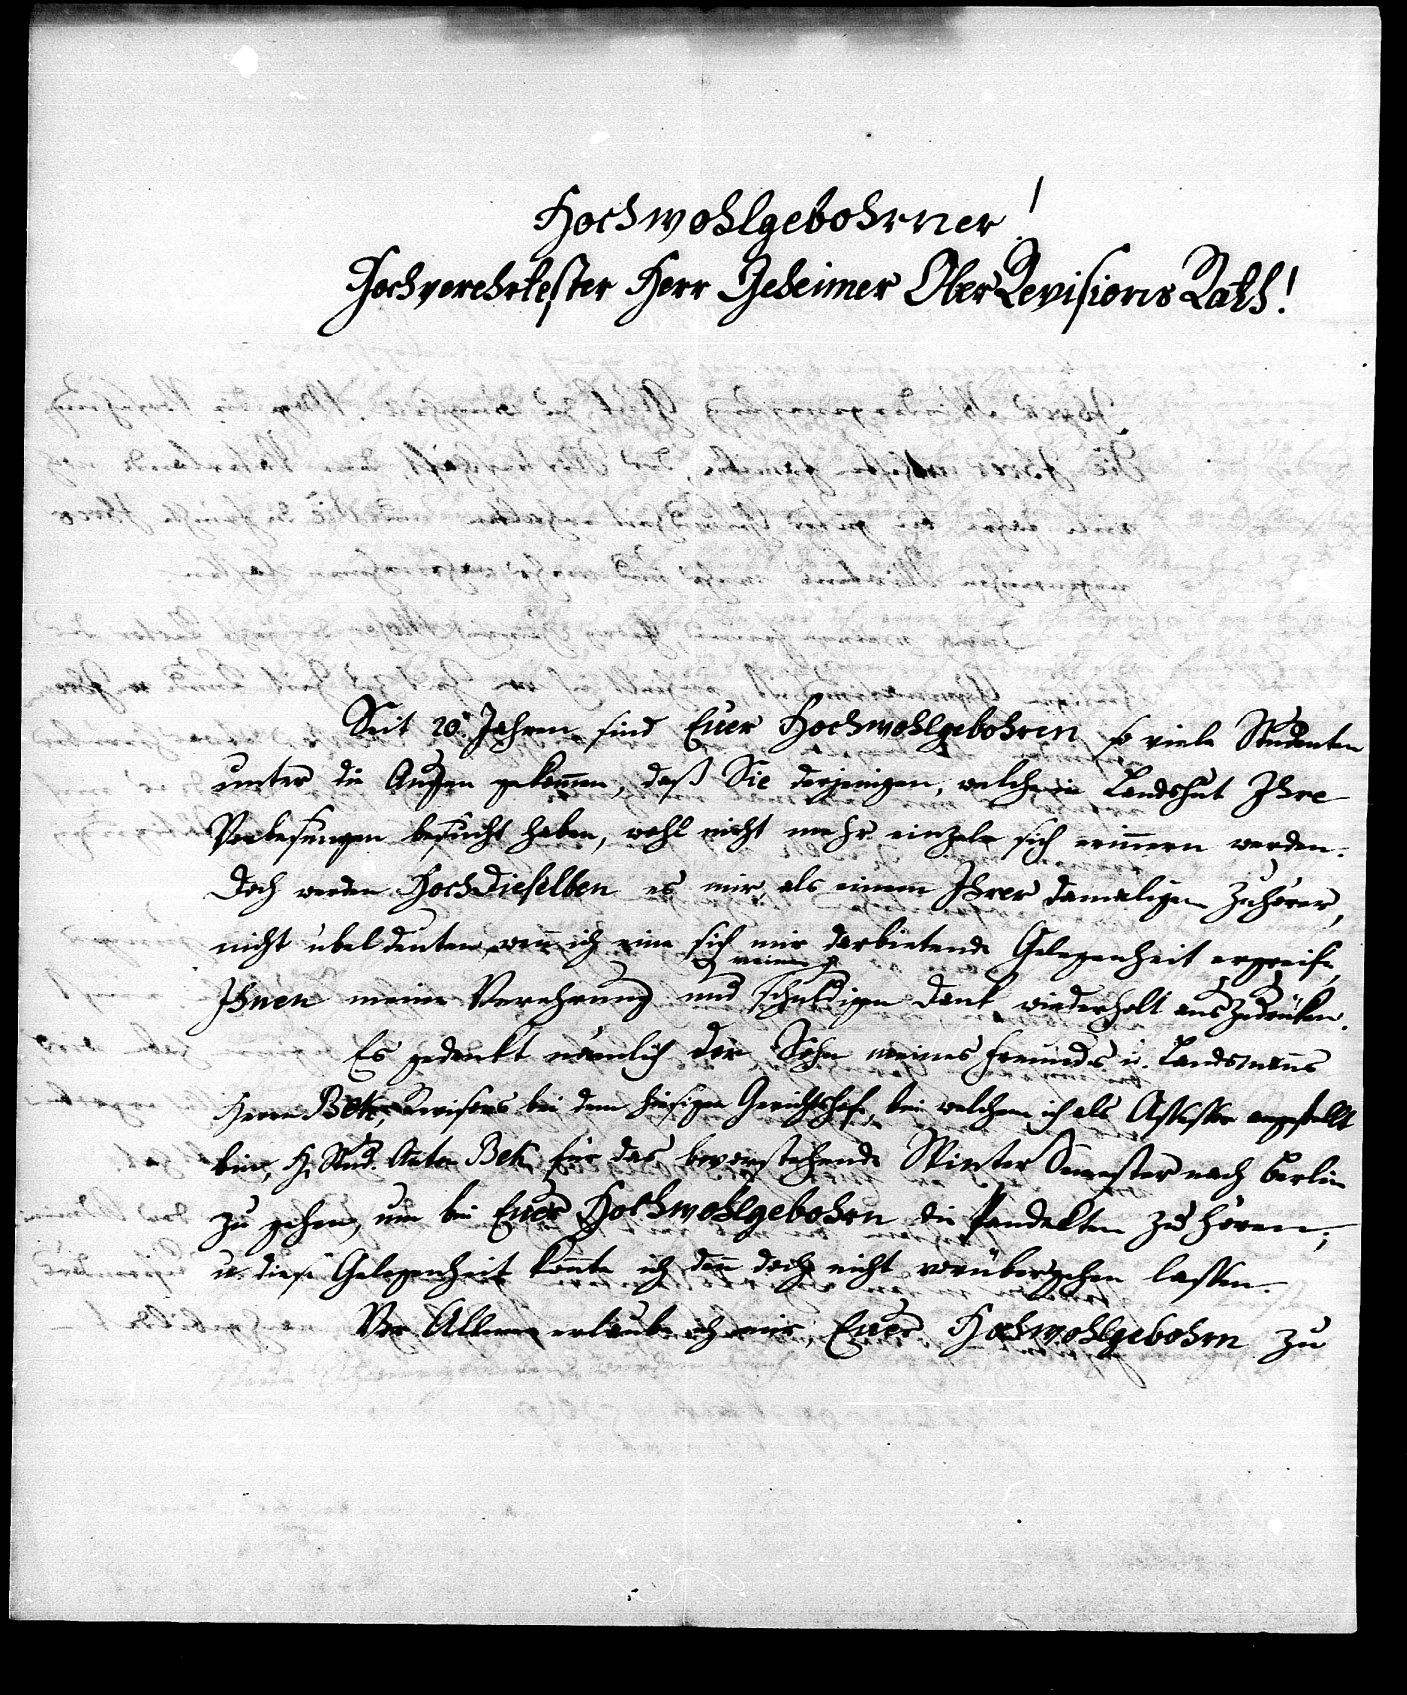 Hochwohlgebohrner!
Hochverehrtester Herr Geheimer Ober Revisions Rath!
Seit 20 Jahren sind Euer Hochwohlgebohren so viele Studenten
unter die Augen gekommen, daß Sie derjenigen, welche in Landshut Ihre
Vorlesungen besucht haben, wohl nicht mehr einzeln sich erinnern werden.
Doch werden HochDieselben es mir, als einem Ihrer damaligen Zuhörer,
nicht übel deuten, wenn ich eine sich mir darbietende Gelegenheit ergreife,
Ihnen meine Verehrung und meinen schuldigen Dank wiederholt auszudrüken.
Es gedenkt nämlich der Sohn meines Freundes u. Landsmanns
Herrn Bek, Revisors bei dem hiesigen Gerichtshofe, bei welchem ich als Assessor angestellt
bin, H. Stud. Anton Bek, für das bevorstehende Winter Semester nach Berlin
zu gehen, um bei Euer Hochwohlgebohrn die Pandekten zu hören;
u. diese Gelegenheit konnte ich denn doch nicht vorübergehen lassen.
Vor Allem erlaube ich mir, Euer Hochwohlgebohrn zu